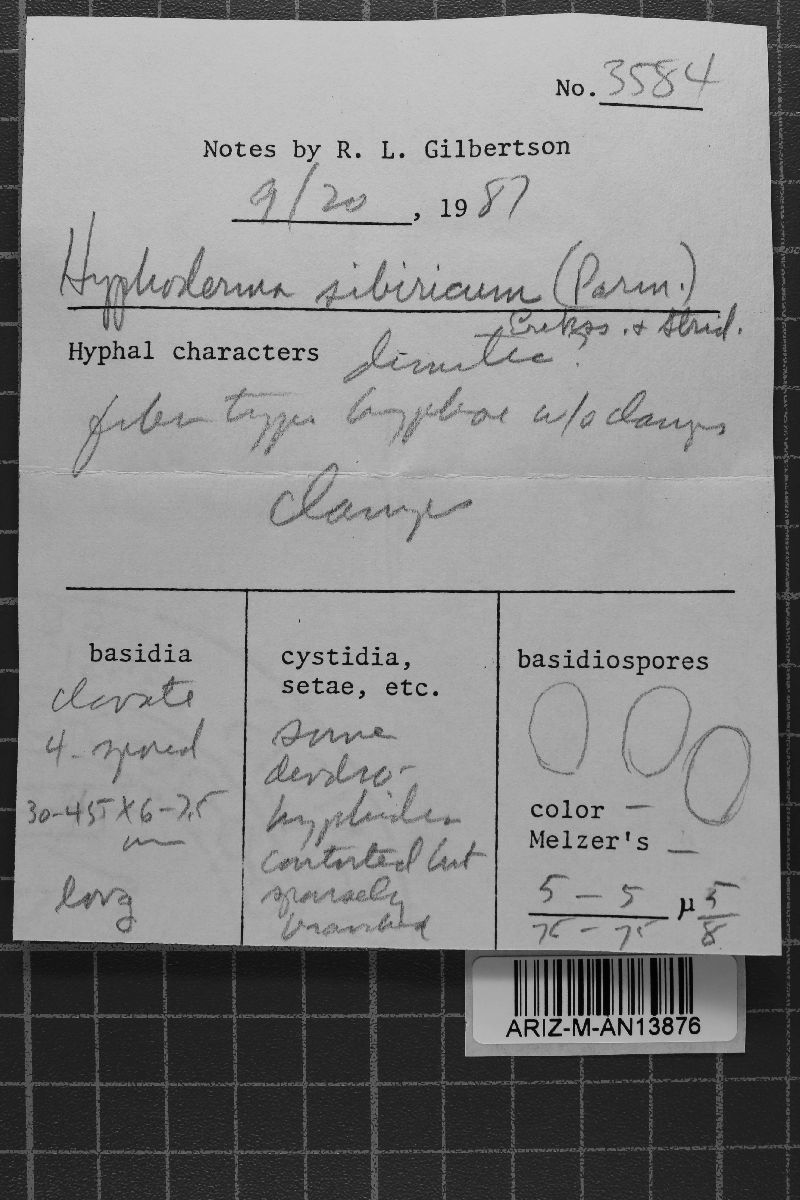 No. 3584
Notes by R. L. Gilbertson
9/20, 1987
Hyphoderma sibiricum (Parm.)
Erikss. & Strid.
Hyphal characters dimitic?
fiber type hyphae w/o clamps
clamps
basidia
clavate
4-spored
30-45 X 6-7.5
long
cystidia,
setae, etc.
some
dendro-
hyphidia
contorted but
sparsely
branched
basidiospores
color —
Melzer's —
5 - 5 µ 5
75 - 75 8
ARIZ-M-AN13876